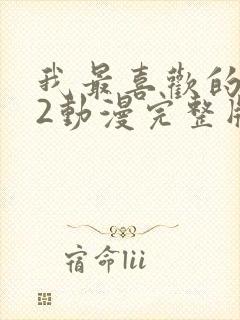 我最喜歡的
2動漫完整版
宿命lii